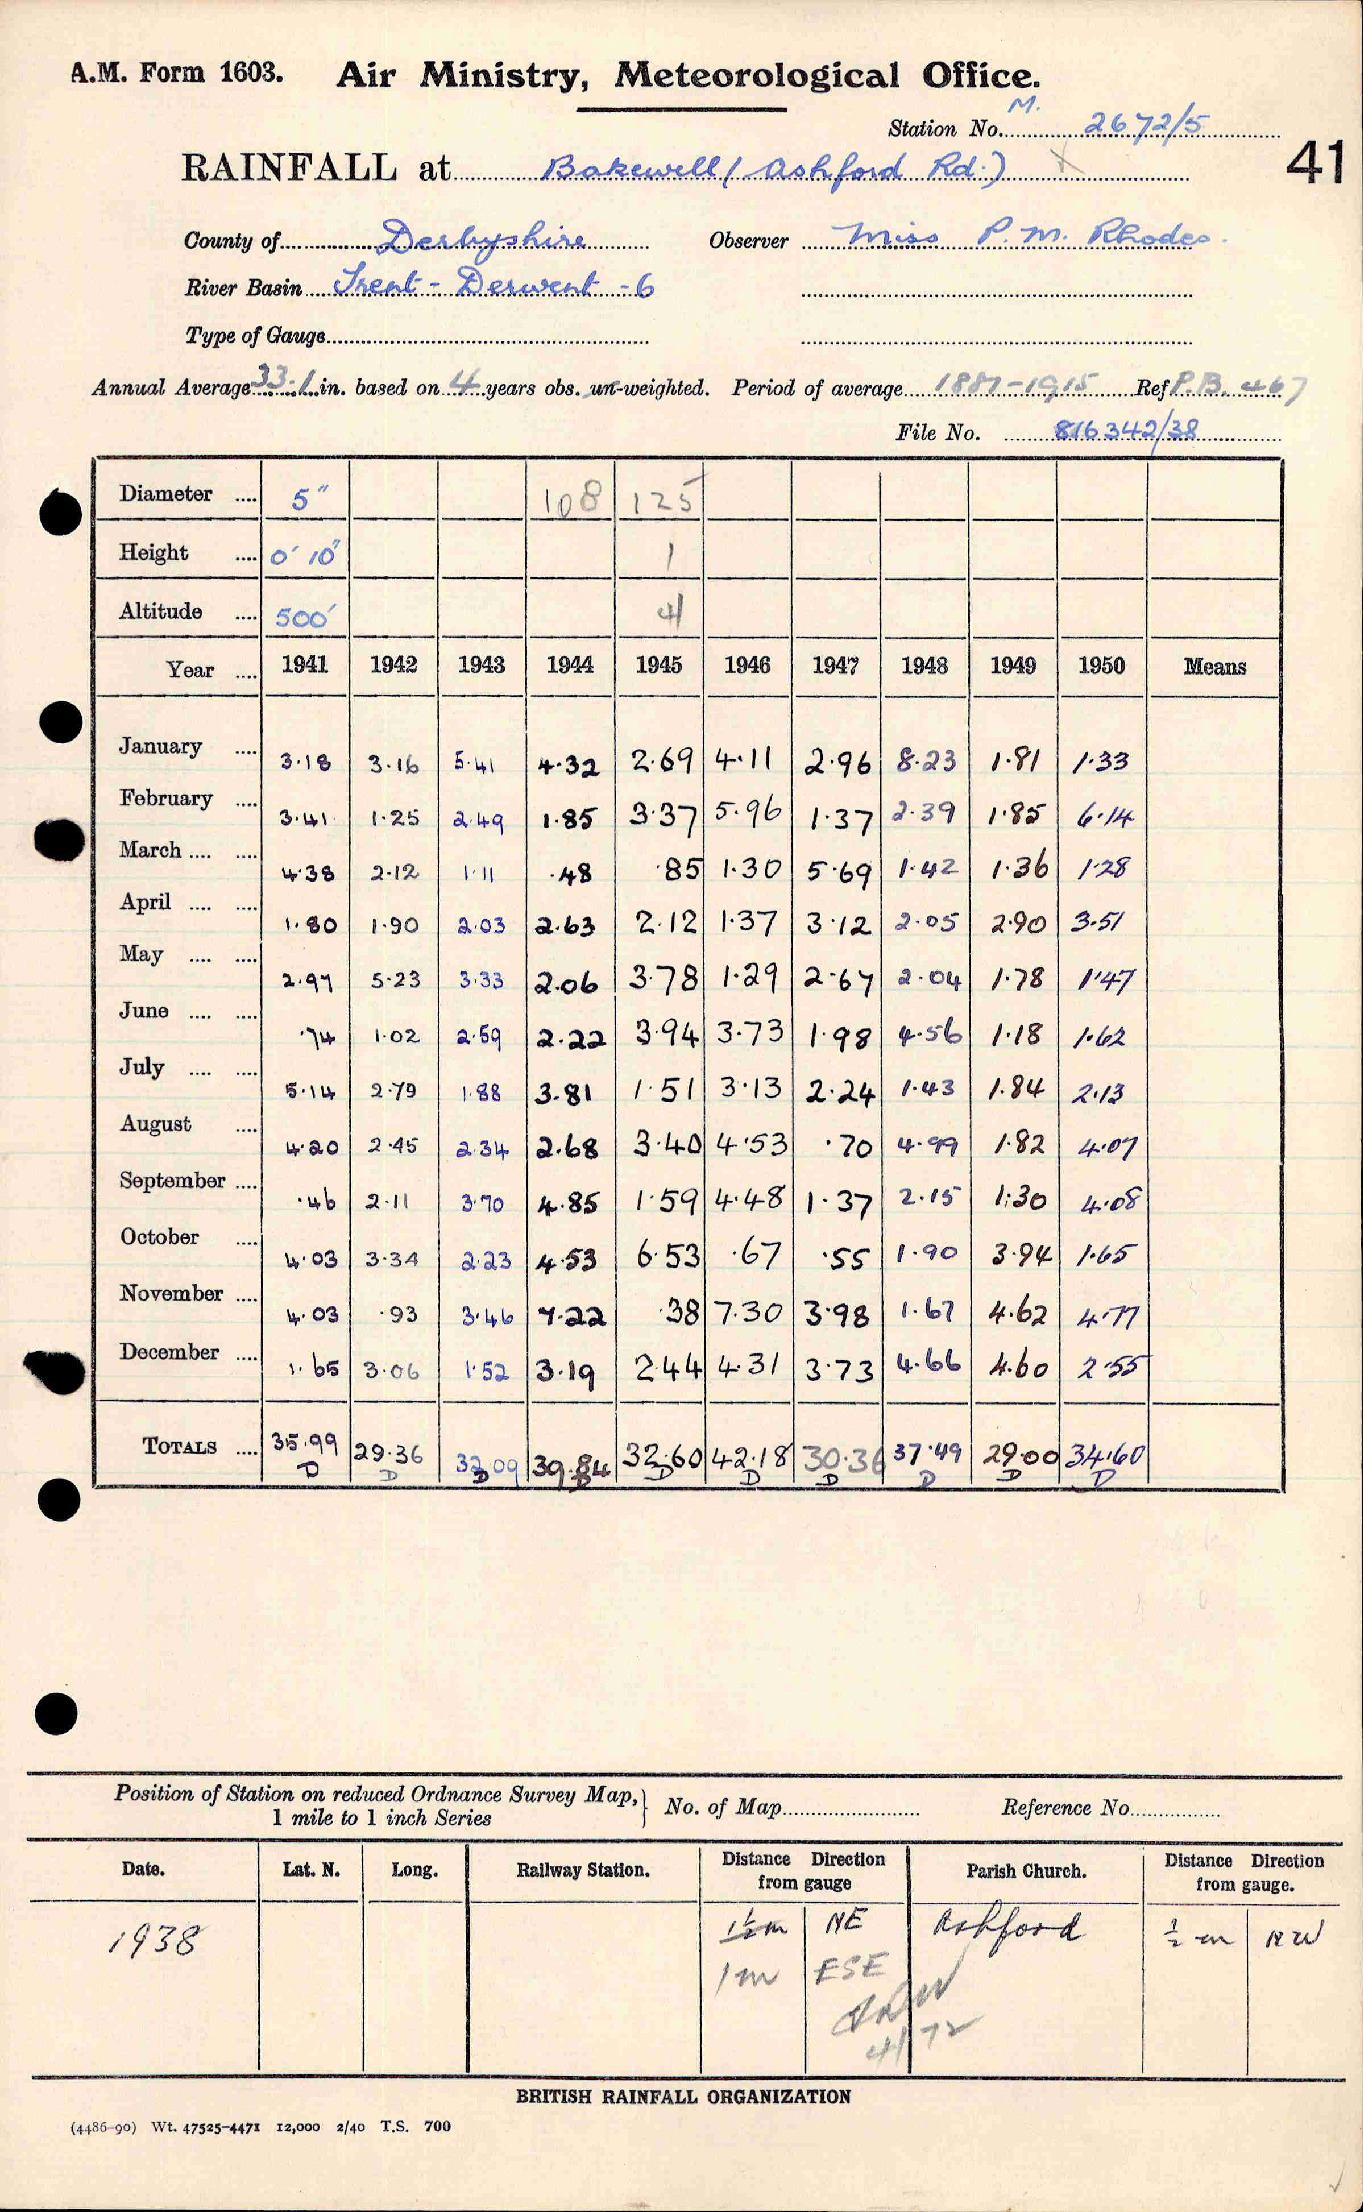 A.M. Form 1603. Air Ministry, Meteorological Office.
M.
Station No. 2672/5
41
RAINFALL at Bakewell (Ashford Rd.) X
County of Derbyshire Observer Miss P. M. Rhodes.
River Basin Trent - Derwent - 6
Type of Gauge
Annual Average 33.1 in. based on 4 years obs. un-weighted. Period of average 1881-1915 Ref P.B. 467
File No. 816342/38
Diameter .... 5" 108 125
Height .... 0' 10" 1
Altitude .... 500' 41
Year .... 1941 1942 1943 1944 1945 1946 1947 1948 1949 1950 Means
January .... 3.18 3.16 5.41 4.32 2.69 4.11 2.96 8.23 1.81 1.33
February .... 3.41 1.25 2.49 1.85 3.37 5.96 1.37 2.39 1.85 6.14
March .... .... 4.38 2.12 1.11 .48 .85 1.30 5.69 1.42 1.36 1.28
April .... .... 1.80 1.90 2.03 2.63 2.12 1.37 3.12 2.05 2.90 3.51
May .... .... 2.97 5.23 3.33 2.06 3.78 1.29 2.67 2.04 1.78 1.47
June .... .... .74 1.02 2.59 2.22 3.94 3.73 1.98 4.56 1.18 1.62
July .... .... 5.14 2.79 1.88 3.81 1.51 3.13 2.24 1.43 1.84 2.13
August .... 4.20 2.45 2.34 2.68 3.40 4.53 .70 4.99 1.82 4.07
September .... .46 2.11 3.70 4.85 1.59 4.48 1.37 2.15 1.30 4.08
October .... 4.03 3.34 2.23 4.53 6.53 .67 .55 1.90 3.94 1.65
November .... 4.03 .93 3.46 7.22 .38 7.30 3.98 1.67 4.62 4.77
December .... 1.65 3.06 1.52 3.19 2.44 4.31 3.73 4.66 4.60 2.55
TOTALS .... 35.99 29.36 32.09 39.84 32.60 42.18 30.36 37.49 29.00 34.60
D D D D D D D D D D
Position of Station on reduced Ordnance Survey Map, 1 mile to 1 inch Series } No. of Map Reference No.
Date. Lat. N. Long. Railway Station. Distance Direction from gauge Parish Church. Distance Direction from gauge.
1938 1½ m NE Ashford ½ m NW
1 m ESE
4/72
BRITISH RAINFALL ORGANIZATION
(4486-90) Wt. 47525-4471 12,000 2/40 T.S. 700